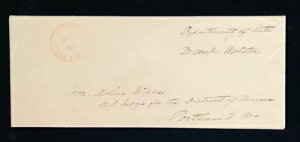 Department of State
Daniel Webster
Hon. Ashur Ware
Judge for the District of Maine
Portland Me